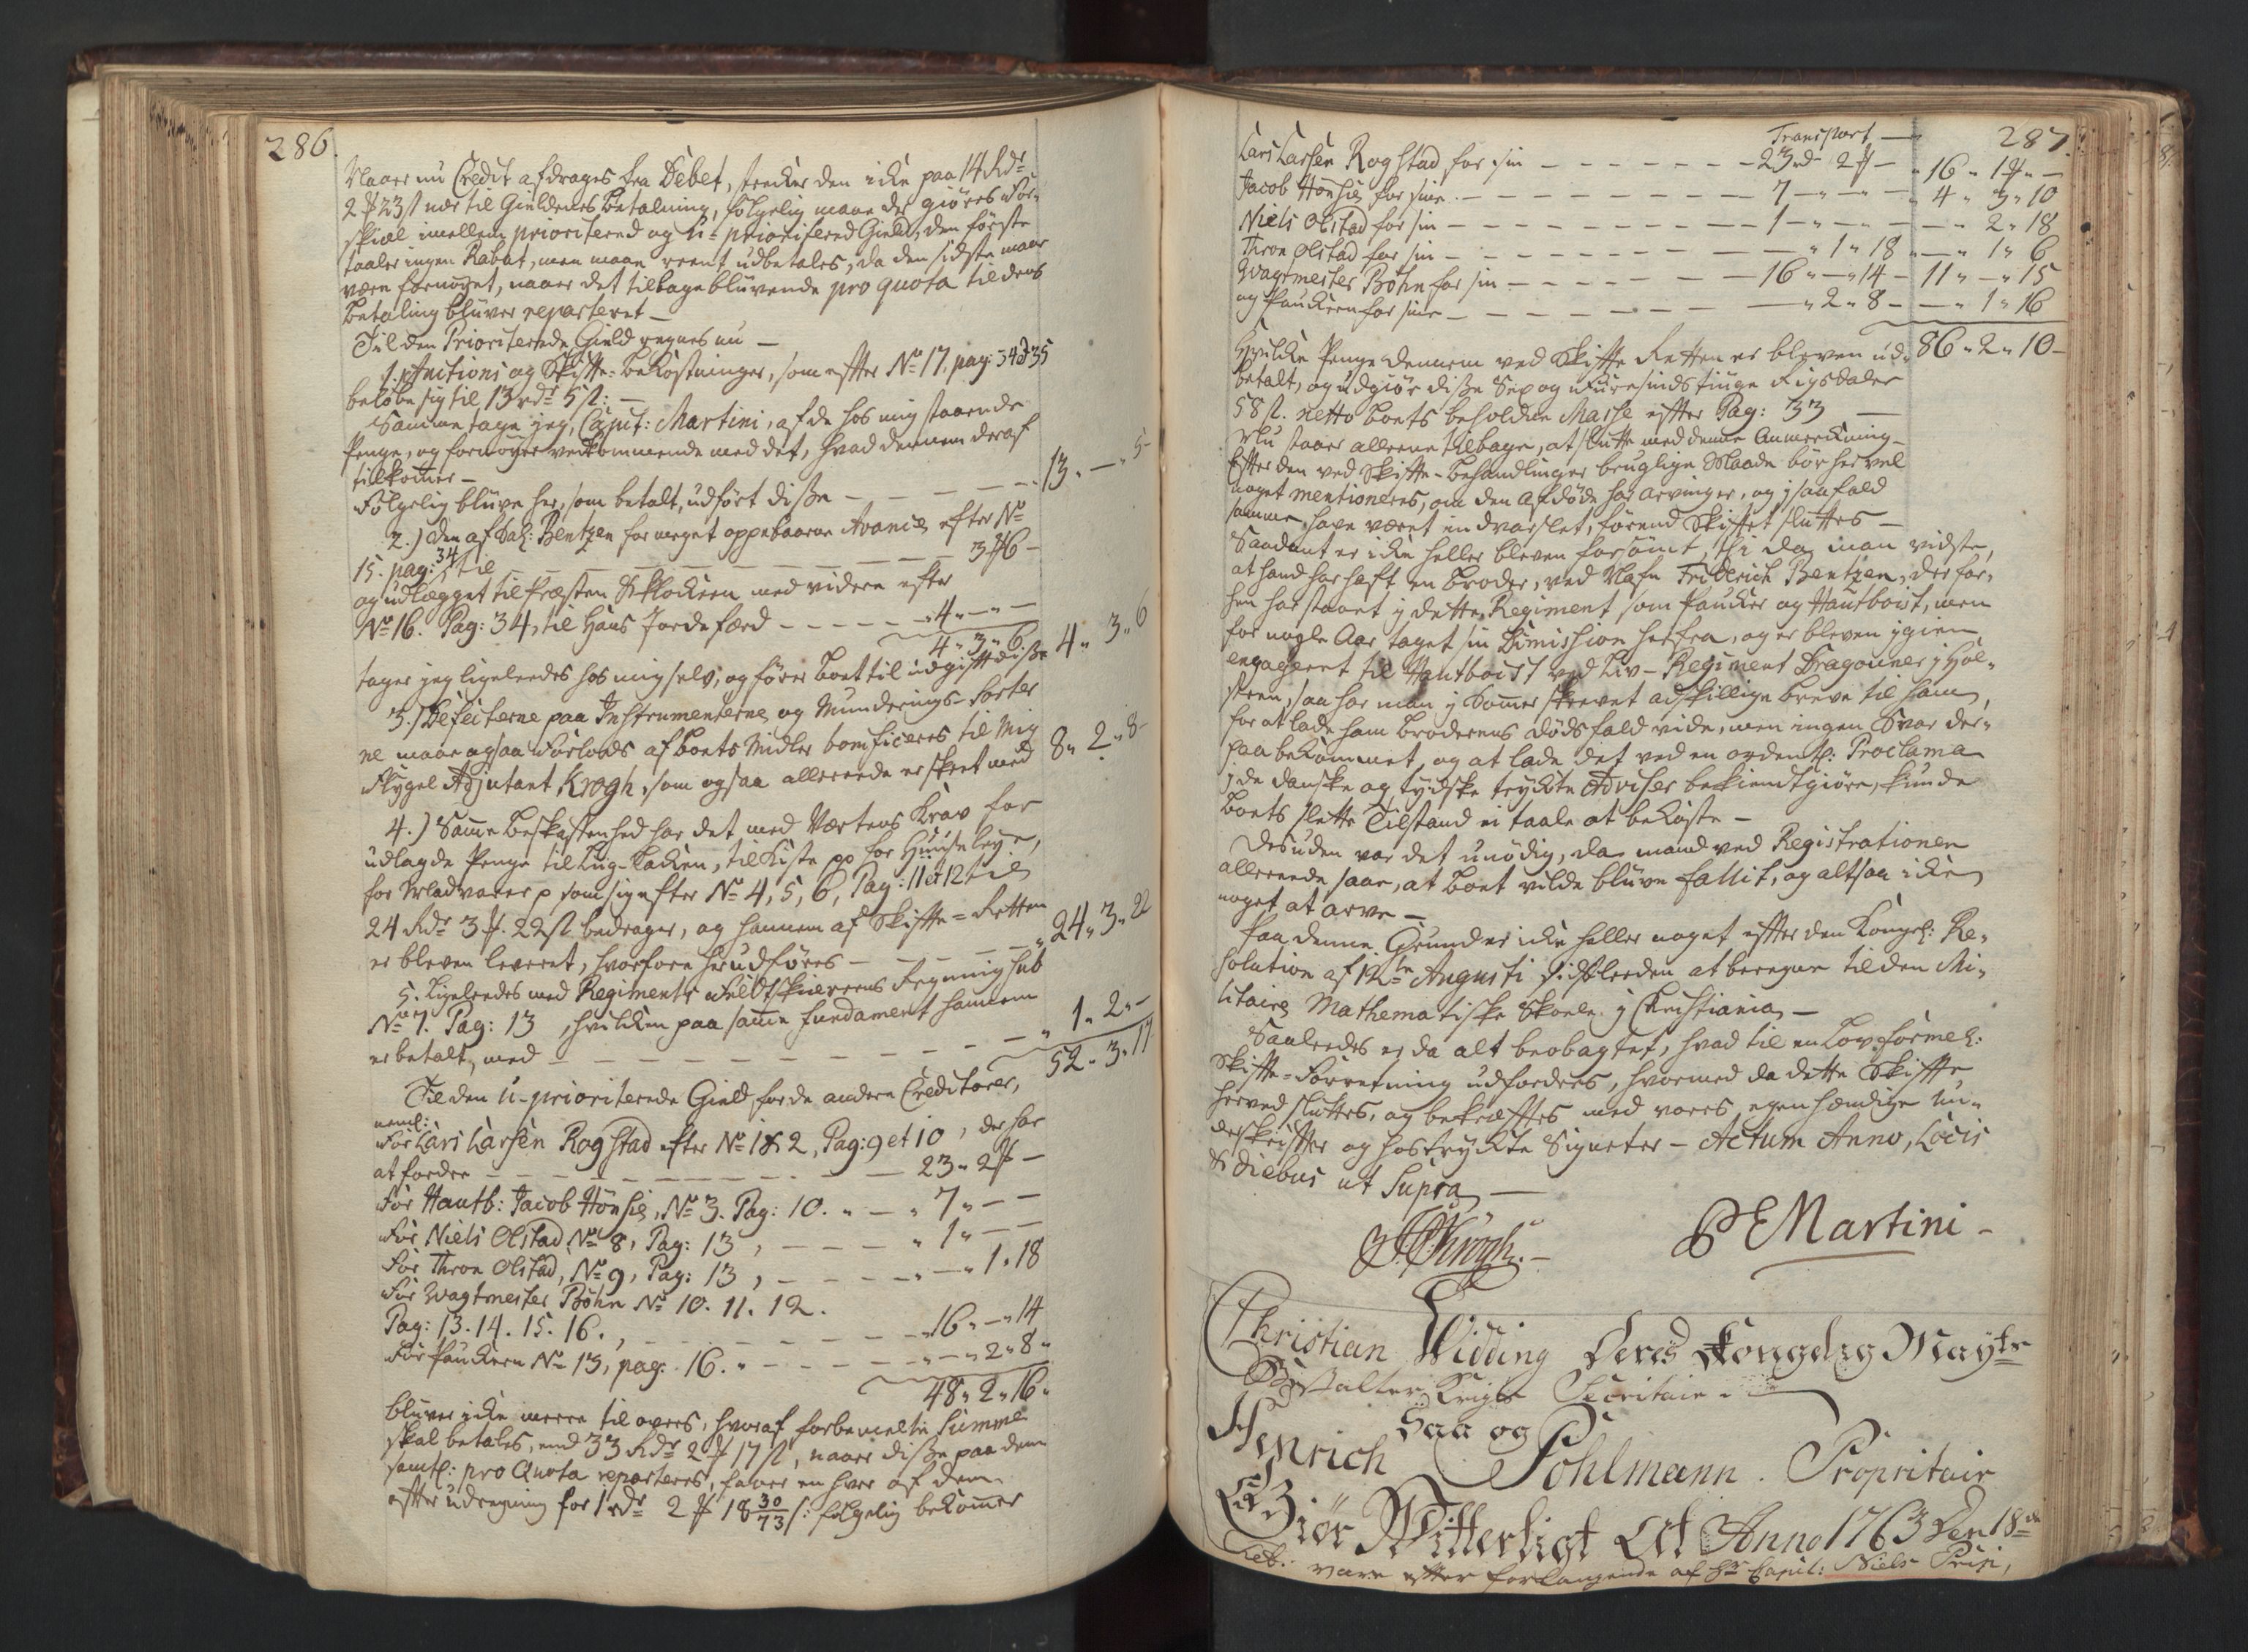 286.
Naar nu Credit afdrages fra Debet, strecker den icke paa 14 Rdr
2 ℔ 23 s nær til Gieldenes Betalning, følgelig maae der giøres For-
skiæl imellem prioritered og u-prioritered Gield, den første
taaler ingen Rabat, men maae reent udbetales, da den sidste maae
være fornøyet, naar det tilbageblivende pro quota til dens
Betaling bliver reparteret —
Til den Prioriterede Gield regnes nu —
1.) Auctions og Skifte-bekostninger, som efter No 17. pag: 34 & 35
beløbe sig til 13 rdr 5 s: —
Samme tager jeg, Capit: Martini, af de hos mig staaende
Penge, og fornøyer vedkommende med det, hvad dennem deraf
tilkommer —
Følgelig blive her, som betalt, udført disse — — — 13 „ — „ 5 —
2.) Den af Sal: Bentzen for meget oppebaaren Avance efter No
15. pag: 34 til — — — — — 3 ℔ 6 —
og udlægget til Præsten & Klockeren med videre efter
No 16. Pag: 34, til Hans Jordefærd — — — — 4 „ — „ —
4 „ 3 „ 6
tager jeg ligeledes hos mig selv, og fører Boet til udgift disse 4 „ 3 „ 6
3.) Defecterne paa Instrumenterne og Munderings-Sorter
ne maae ogsaa forlods af Boets Midler bonificeres til Mig
Flygel Adjutant Krogh, som ogsaa allereede er skeet med 8 „ 2 „ 8 —
4.) Samme Beskaffenhed har det med Værtens Krav for
udlagde Penge til Liig-Lacken, til Kiste pp for Huusleye,
for Madvarer p som sig efter No 4, 5, 6, Pag: 11 et 12 til
24 Rdr 3 ℔ 22 s bedrager, og hannem af Skifte-Retten
er bleven leveret, hvorfore her udføres — — — „ 24 „ 3 „ 22
5. Ligeledes med Regiments Feldtskiærens Regning sub
No 7. Pag: 13, hvilken paa samme fundament hannem
er betalt, med — — — — — „ 1 „ 2 „ —
52 „ 3 „ 17
Til den u-prioriterede Gield for de andre Creditorer,
neml:
For Lars Larsen Rogstad efter No 1 & 2, Pag: 9 et 10, der har
at fordre — — — — — 23 „ 2 ℔ —
For Hautb: Jacob Hönsie, No 3. Pag: 10. „ — „ 7 „ — —
For Niels Olstad No 8, Pag: 13, — — — „ 1 „ — —
For Thron Olstad, No 9, Pag: 13, — — — „ — „ 1 „ 18
For Wagtmester Böhn No 10. 11. 12.
Pag: 13. 14. 15. 16., — — — — „ 16 „ — „ 14
For Pauckern No 13, pag: 16. „ — — — — „ — „ 2 „ 8 „
48 „ 2 „ 16 „
bliver icke meere til overs, hvoraf forbemelte Summe
skal betales, end 33 Rdr 2 ℔ 17 s, naar disse paa dem
samtl: pro Quota reparteres, faaer en hver af dem
efter udregning for 1 rdr 2 ℔ 18 30/73 s: følgelig bekommer
287.
Transport —
Lars Larsen Rogstad for sin — — — — 23 rd 2 ℔ — „ 16 „ 1 ℔ „ —
Jacob Hönsie for sine — — — — 7 — „ — „ — „ 4 „ 3 „ 10
Niels Olstad for sin — — — — 1 — „ — „ — — „ 2 „ 18
Thron Olstad for sin — — — — — „ 1 „ 18 „ — „ 1 „ 6
Wagtmester Böhn for sin — — — — 16 „ — „ 14 — 11 „ — „ 15
og Pauckern for sine — — — — — „ 2 „ 8 — — „ 1 „ 16
Hvilke Penge dennem ved Skifte Retten er bleven ud- 86 „ 2 „ 10 —
betalt, og udgiør disse Sex og Fiiresindstiuge Rigsdaler
58 s. netto Boets beholdne Masse efter Pag: 33 —
Nu staaer alleene tilbage, at slutte med denne Anmerckning —
Efter den ved Skifte-behandlinger brugelige Maade bør her vel
noget mentioneres, om den afdøde har arvinger, og i saa fald
samme have været endvarslet, førend Skiftet sluttes —
Saadant er icke heller bleven forsömt, thi da man vidste,
at hand har haft en Broder, ved Nafn Friderich Bentzen, der for-
hen har staaet i dette Regiment som Paucker og Hautboist, men
for nogle Aar taget sin Dimission herfra, og er bleven igien
engageret til Hautboist ved Liv-Regiment Dragouner i Hol-
steen, saa har man i Sommer skrevet adskillige Breve til ham,
for at lade ham Broderens dødsfald vide, men ingen Svar der-
paa bekommet, og at lade det ved en ordentl: Proclama
i de danske og tydske tryckte Adviser bekiendtgiøre, kunde
Boets slette Tilstand ei taale at bekoste —
Desuden var det unödig, da mand ved Registrationen
allereede saae, at Boet vilde blive fallit, og altsaa icke
noget at arve —
Paa denne Grund er icke heller noget efter den Kongel: Re-
solution af 12te Augusti sidstleeden at beregne til den Mi-
litaire Mathematiske Skoele i Christiania —
Saaleedes er da alt beobagtet, hvad til en Lovformel:
Skifte-Forretning udfordres, hvormed da dette Skifte
herved sluttes, og bekræftes med vores egenhændige Un-
derskrifter og hostryckte Signeter — Actum Anno, Locis
& diebus ut Supra —
Krogh. — P E Martini —
Christian Widding Deris Kongelig Mayts
Bestalter Krigs Secritair
Saa og
Henrich Pohlmann. Propritair
Giör Witterligt At Anno 1763 Den 18de
vare efter forlangende af Hr Capit: Niels